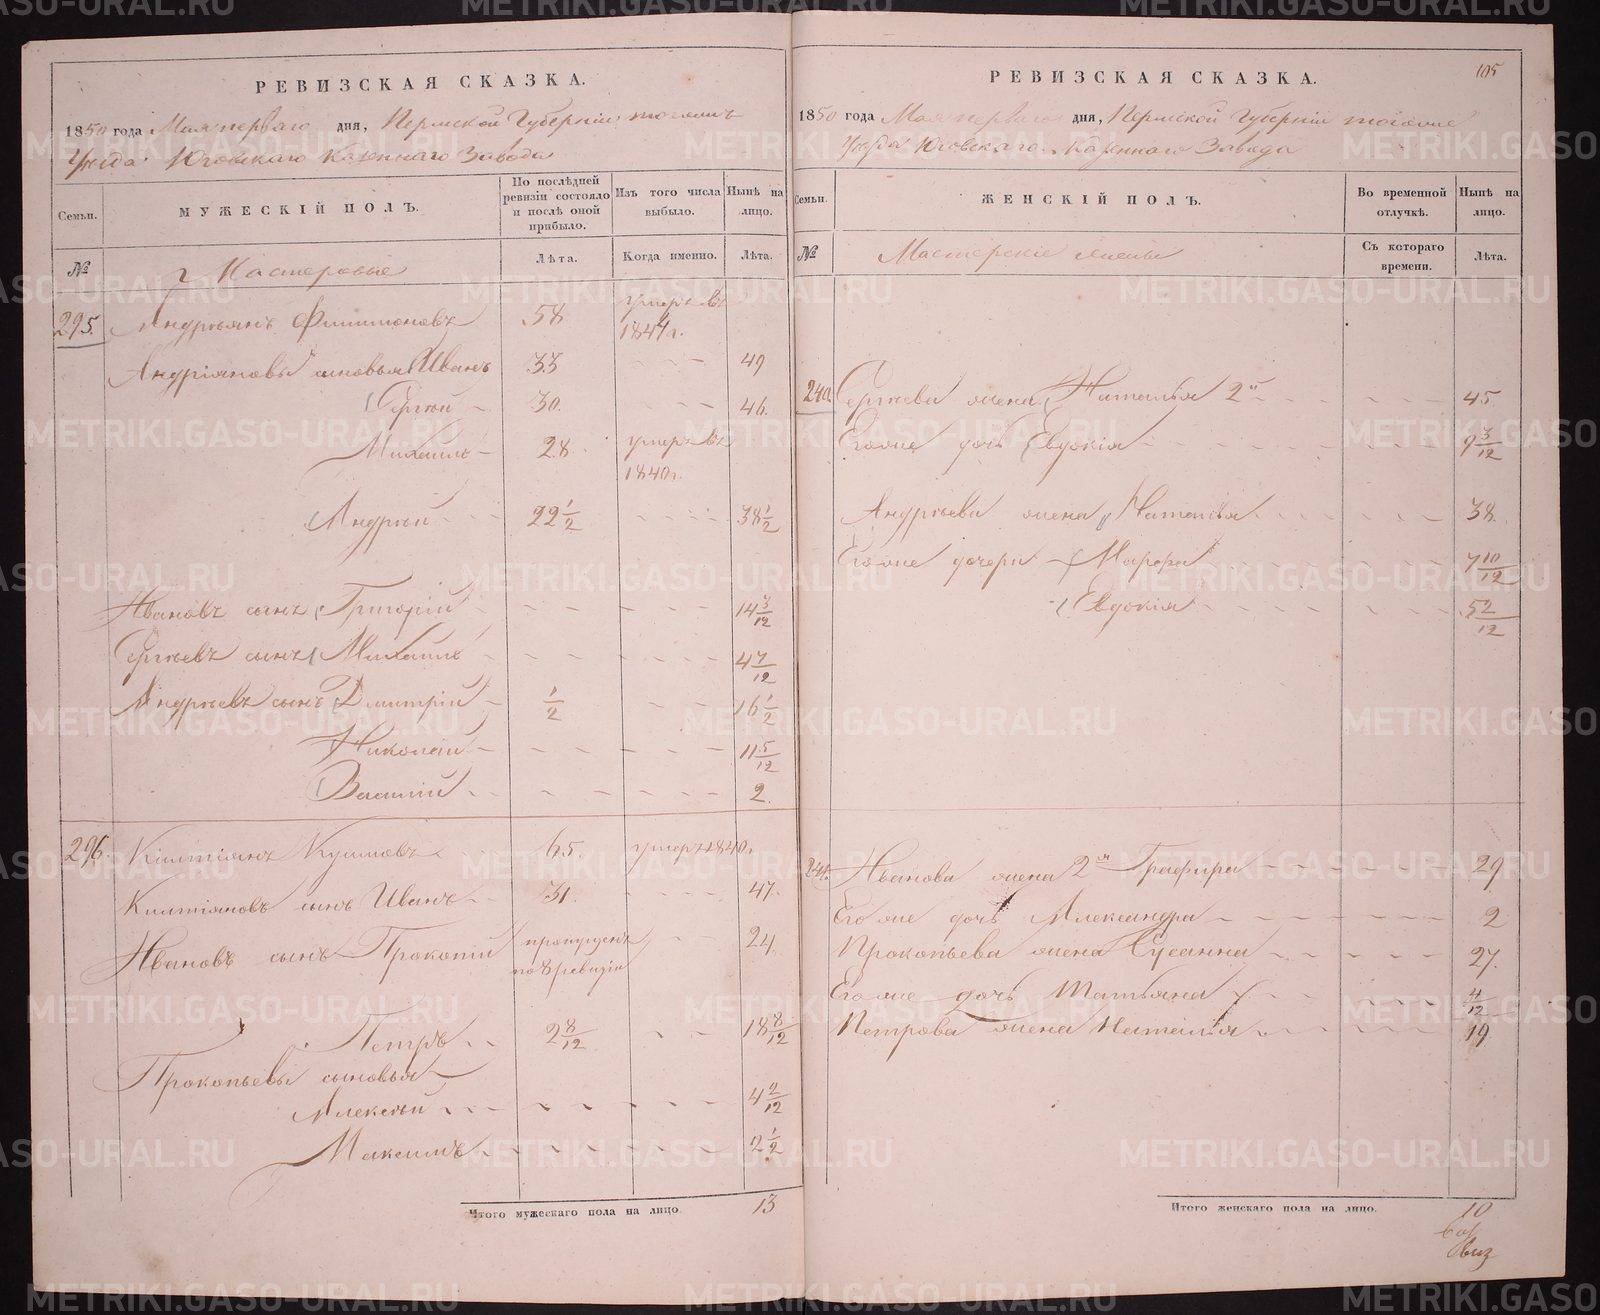 РЕВИЗСКАЯ СКАЗКА.
1850 года Мая перваго дня, Пермской Губерніи тогожъ
Уѣзда Юговскаго Казеннаго Завода
Семьи.
МУЖЕСКІЙ ПОЛЪ.
По послѣдней ревизіи состояло и послѣ оной прибыло.
Изъ того числа выбыло.
Нынѣ на лицо.
№
Мастеровые
Лѣта.
Когда именно.
Лѣта.
295. Андреянъ Филимоновъ 58 умеръ въ
1844 г.
Андріяновы сыновья Иванъ 33 49
Сергѣй 30. 46.
Михаилъ 28. умеръ въ
1840 г.
Андрей 22 1/2 38 1/2
Ивановъ сынъ Григорій 14 3/12
Сергѣевъ сынъ Михаилъ 4 7/12
Андреевъ сынъ Дмитрій 1/2 16 1/2
Николай 11 5/12
Василій 2.
296. 65. умеръ 1840.
сынъ Иванъ 31. 47.
Ивановъ сынъ Прокопій пропущенъ 24.
по 8 ревизіи
Петръ 2 8/12 18 8/12
Прокопьевы сыновья
Алексѣй 4 2/12
Максимъ 2 1/2
Итого мужескаго пола на лицо. 13
РЕВИЗСКАЯ СКАЗКА. 105
1850 года Мая перваго дня, Пермской Губерніи тогоже
Уѣзда Юговскаго Казеннаго Завода
Семьи.
ЖЕНСКІЙ ПОЛЪ.
Во временной отлучкѣ.
Нынѣ на лицо.
№
Мастерскіе жены
Съ котораго времени.
Лѣта.
240. Сергѣева жена Наталья 2я 45
Его же дочь Евдокія 9 3/12
Андреева жена Наталья 38.
Его же дочери Марфа 7 10/12
Евдокія 5 2/12
241. Иванова жена 2я Глафира 29
Его же дочь Александра 2
Прокопьева жена Сусанна 27.
Его же дочь Татьяна 4/12
Петрова жена Наталья 19
Итого женскаго пола на лицо. 10
METRIKI.GASO-URAL.RU